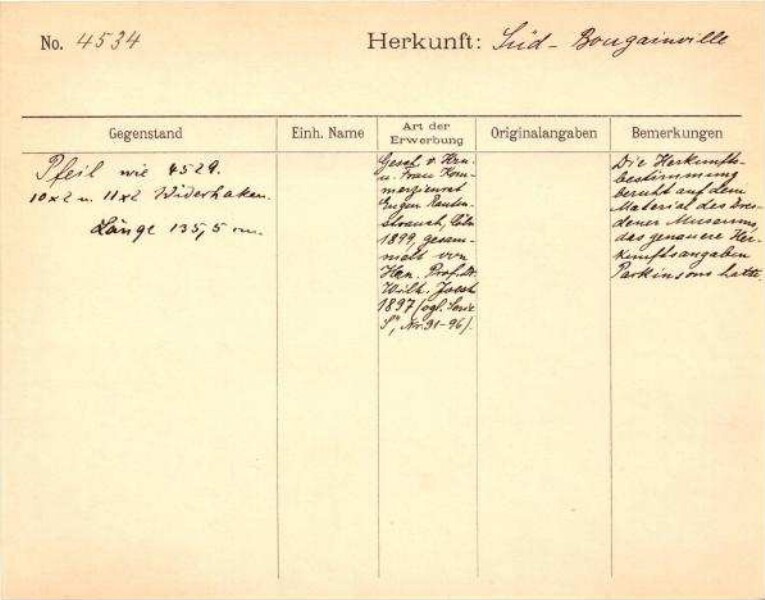 No. 4534 Herkunft: Süd-Bougainville
Gegenstand
Einh. Name
Art der
Erwerbung
Originalangaben
Bemerkungen
Pfeil wie 4529.
10x2 u. 11x2 Widerhaken.
Länge 135,5 cm.
Gesch. v. Hrn.
u. Frau Kom-
merzienrat
Eugen Rauten-
strauch, Cöln
1899, gesam-
melt von
Hrn. Prof. Dr.
Wilh. Joest
1897 (vgl. Serie
S", Nr. 91-96).
Die Herkunfts-
bestimmung
beruht auf dem
Material des Dres-
dener Museums,
das genauere Her-
kunftsangaben
Parkinsons hatte.